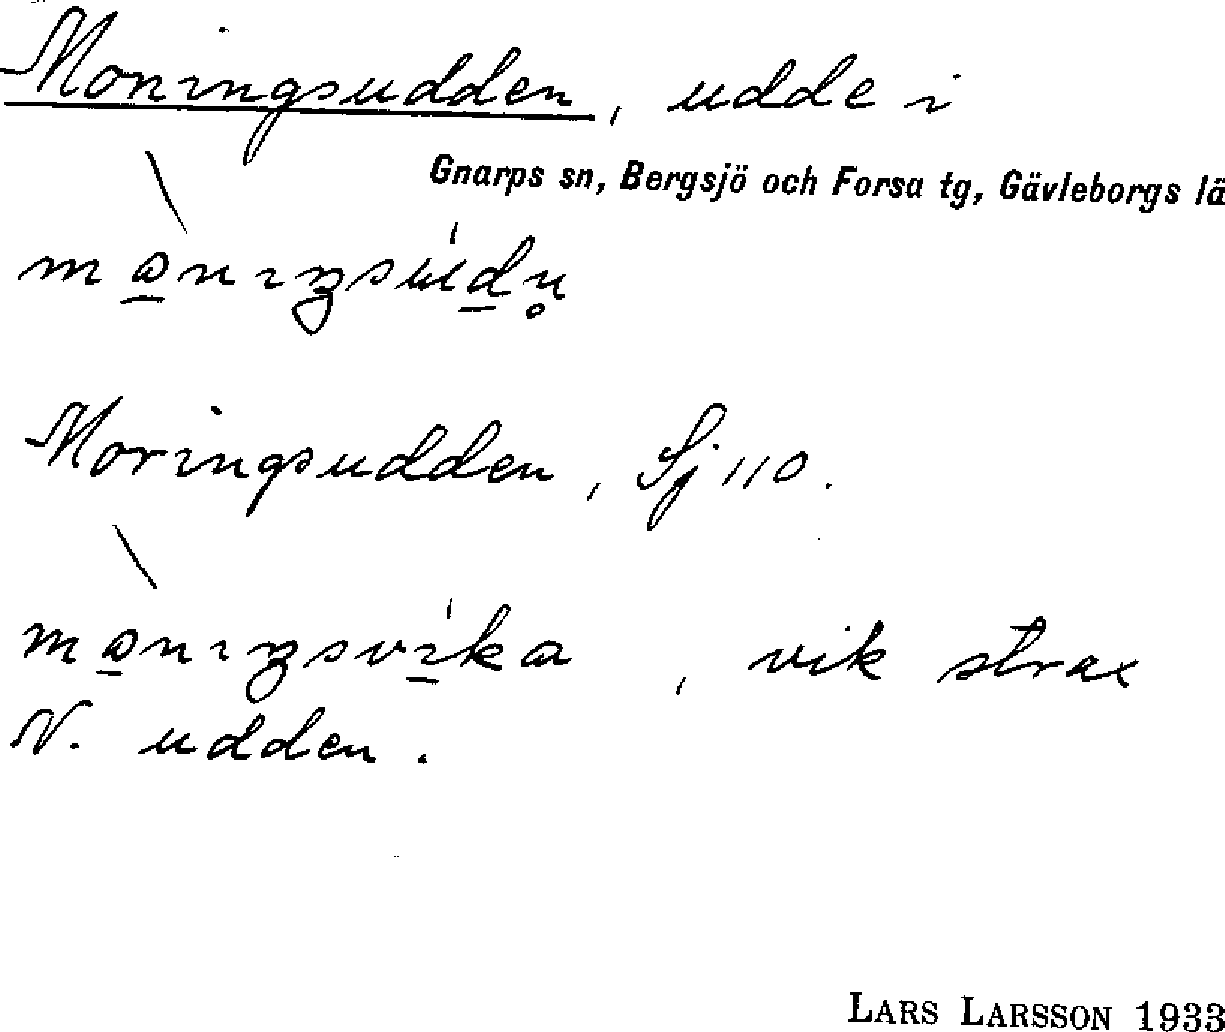 Moningsudden, udde i
Gnarps sn, Bergsjö och Forsa tg, Gävleborgs lä
Moringsudden, Sj 110.
, vik strax
N. udden.
LARS LARSSON 1933